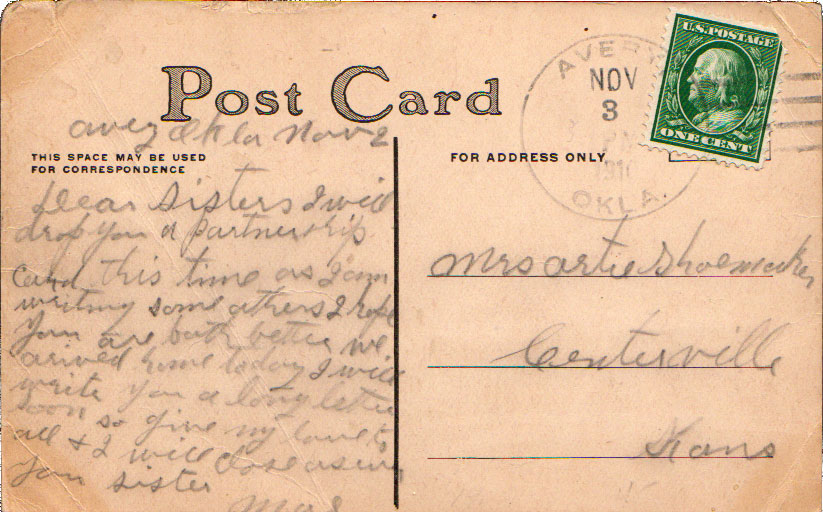 Post Card
THIS SPACE MAY BE USED
FOR CORRESPONDENCE
FOR ADDRESS ONLY
U.S. POSTAGE
ONE CENT
AVERY
NOV
3
1910
OKLA.
avery Okla Nov 2
Dear Sisters I will
drop you a partnership
Card this time as I am
writing some others I hope
you are both better we
arived home today I will
write you a long letter
soon so give my love to
all & I will close as ever
your sister
Mrs artie Shoemaker
Centerville
Kans